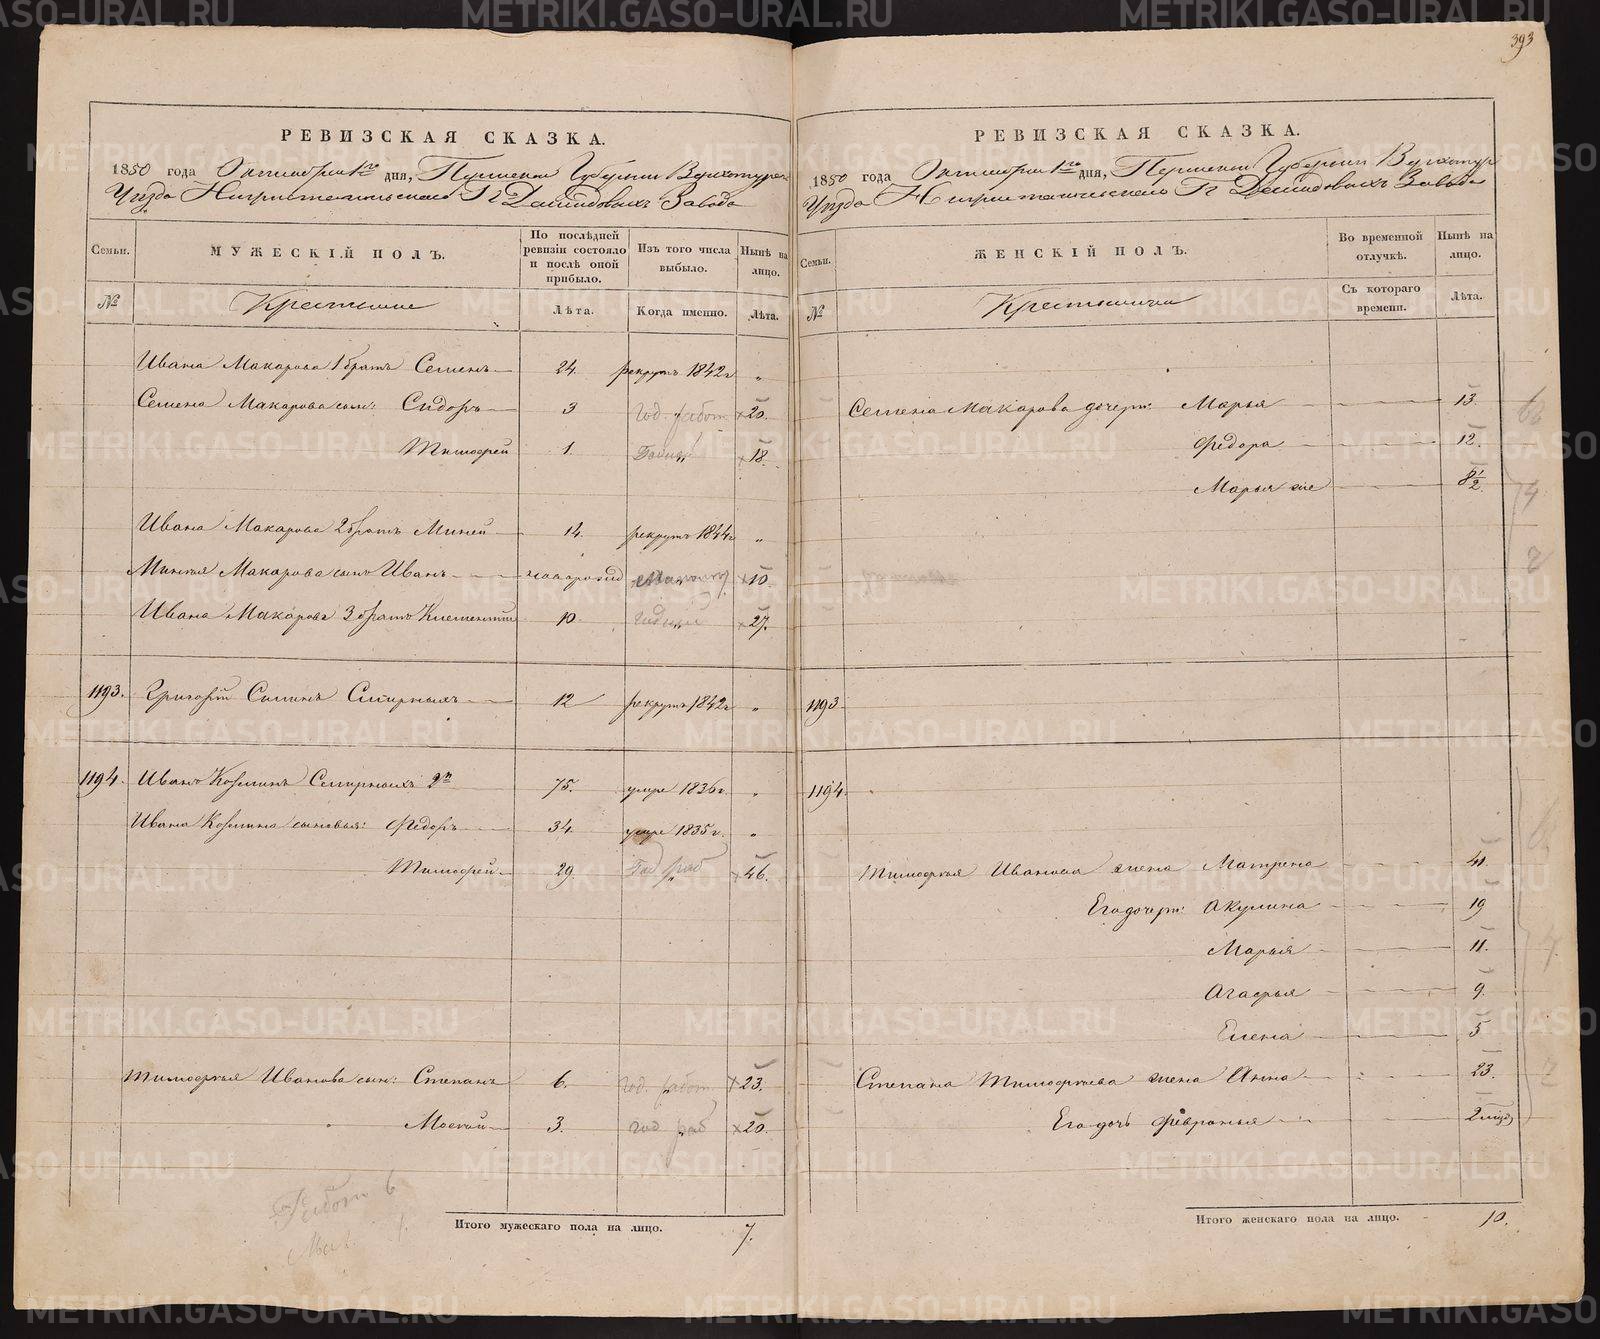 393
РЕВИЗСКАЯ СКАЗКА.
1850 года Октября 1го дня, Пермской Губернии Верхотурск
Уезда Нижнетагильскаго Гг Демидовыхъ Завода
Семьи.
МУЖЕСКІЙ ПОЛЪ.
По послѣдней ревизіи состояло и послѣ оной прибыло.
Изъ того числа выбыло.
Нынѣ на лицо.
№
Крестьяне
Лѣта.
Когда именно.
Лѣта.
Ивана Макарова 1 братъ Семенъ 24. рекрутъ 1842г "
Семена Макарова сын: Сидоръ 3 год. работ 20.
Тимофей 1. 18.
Ивана Макарова 2 братъ Миней 14. рекрутъ 1844г "
Минея Макарова сынъ Иванъ новорожд 10.
Ивана Макарова 3 братъ Климентий 10. 27.
1193. Григорій Силинъ Смирныхъ 12 рекрутъ 1842г "
1194. Иванъ Козминъ Смирныхъ 2й 75. умре 1836г. "
Ивана Козмина сыновья: Федоръ 34. умре 1835г. "
Тимофей 29. Год раб 46.
Тимофея Иванова сын: Степанъ 6. год. работ. 23.
Моисей 3. год раб 20.
Работ 6
Мал. 1.
Итого мужескаго пола на лицо. 7.
РЕВИЗСКАЯ СКАЗКА.
1850 года Октября 1го дня, Пермской Губернии Верхотур
Уезда Нижнетагильскаго Гг Демидовыхъ Завода
Семьи.
ЖЕНСКІЙ ПОЛЪ.
Во временной отлучкѣ.
Нынѣ на лицо.
№
Крестьянки
Съ котораго времени.
Лѣта.
Семена Макарова дочери: Марья 13.
Федора 12.
Марья же 8 1/2
1193
1194.
Тимофея Иванова жена Матрена 41.
Его дочери: Акулина 19
Марья 11.
Агафья 9.
Елена 5
Степана Тимофеева жена Анна 23.
Его дочь Февронья
Итого женскаго пола на лицо. 10.
METRIKI.GASO-URAL.RU